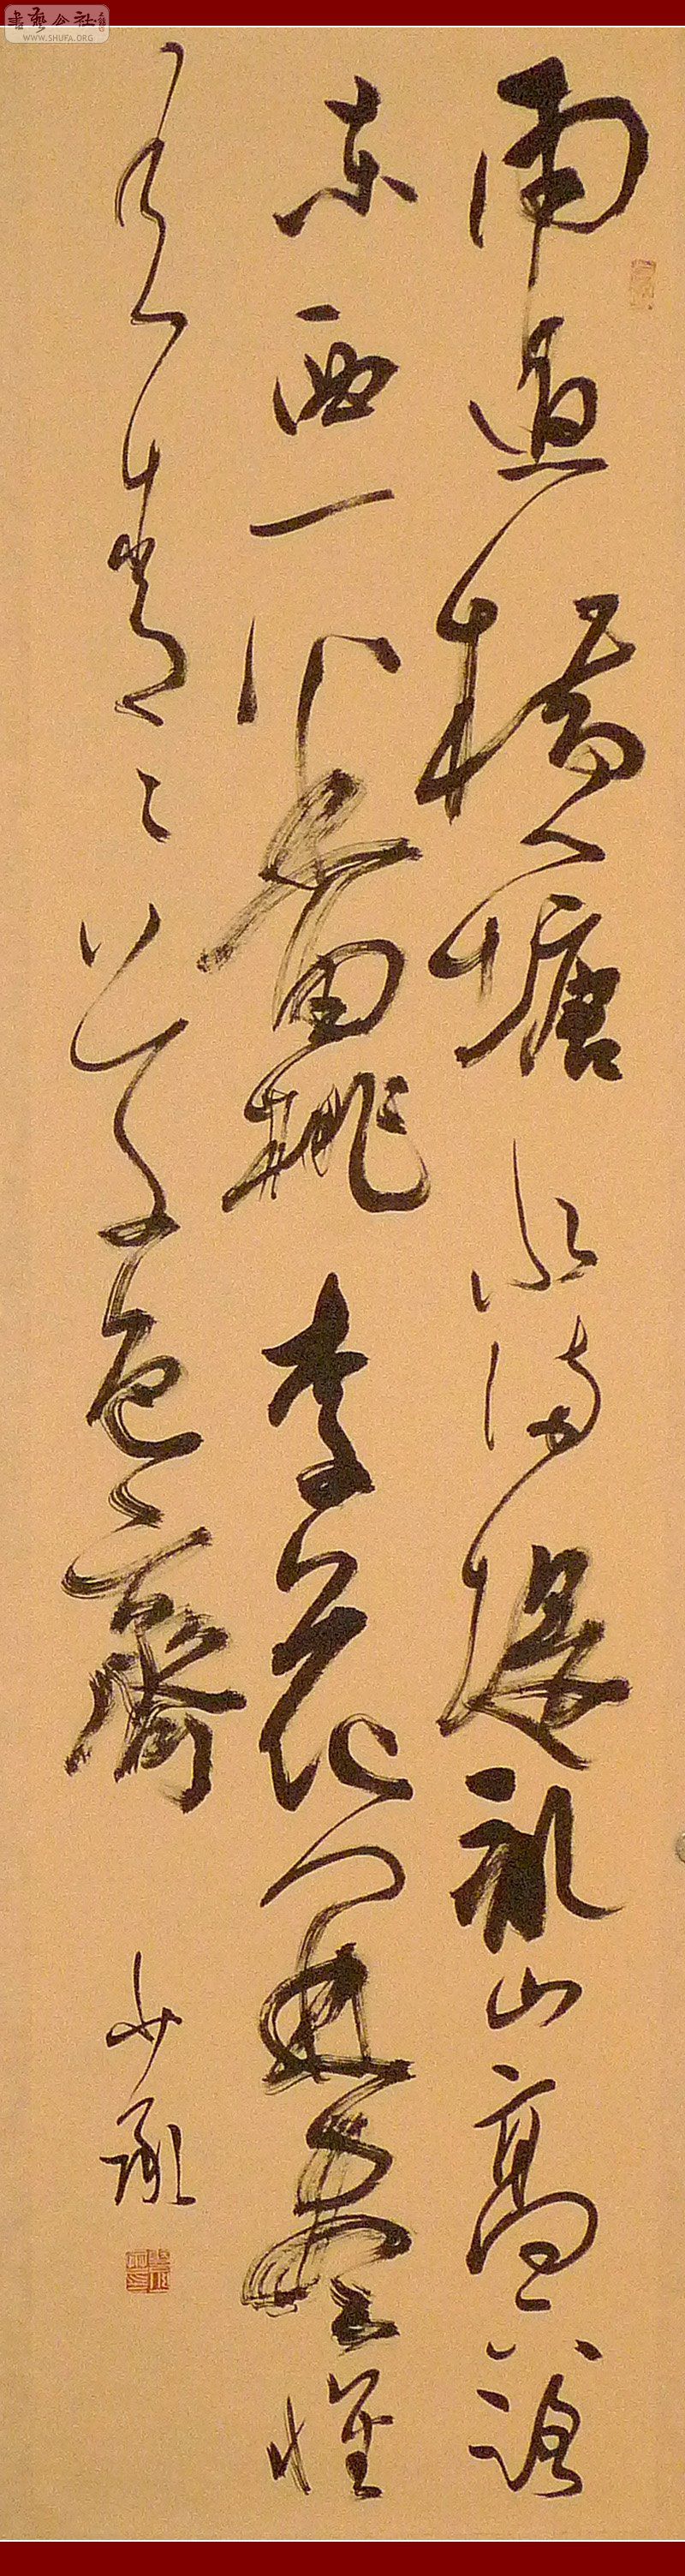 雨過橫塘水滿堤亂山高下路
東西一番桃李花開盡惟
有青々草色齊
少承
書藝公社
WWW.SHUFA.ORG